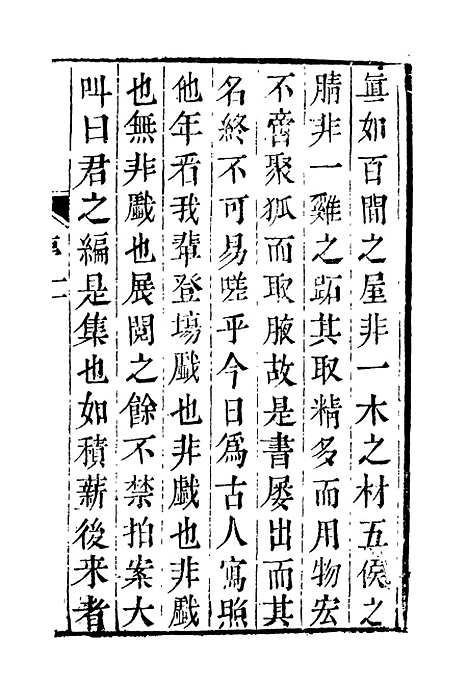 眞如百間之屋非一木之材五侯之
腈非一雞之跖其取精多而用物宏
不啻聚狐而取腋故是書屡出而其
名終不可易嗟乎今日爲古人寫照
他年看我輩登塲戲也非戲也非戲
也無非戲也展閱之餘不禁拍案大
叫曰君之編是集也如積薪後来者
序二